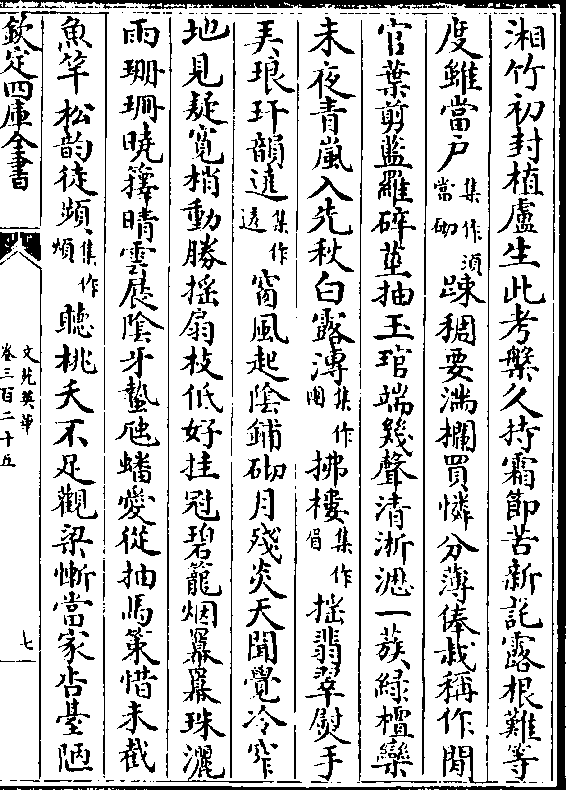 湘竹初封植盧生此考槃久持霜節苦新託露根難等
度雖當戶集作須當砌踈稠要滿欄買憐分薄俸栽稱作閒
官葉剪藍羅碎莖抽玉琯端幾聲清淅瀝一蔟緑檀欒
未夜青嵐入先秋白露漙集作團拂樓集作肩揺翡翠熨手
弄琅玕韻逺集作透窗風起陰鋪砌月殘炎天聞覺冷窄
地見疑寛梢動勝揺扇枝低好挂冠碧籠烟羃羃珠灑
雨珊珊曉籜晴雲展陰牙蟄虺蟠愛從抽馬策惜未截
魚竿松韵徒頻集作煩聽桃夭不足觀梁慚當家杏臺陋
欽定四庫全書
文苑英華
卷三百二十五
七